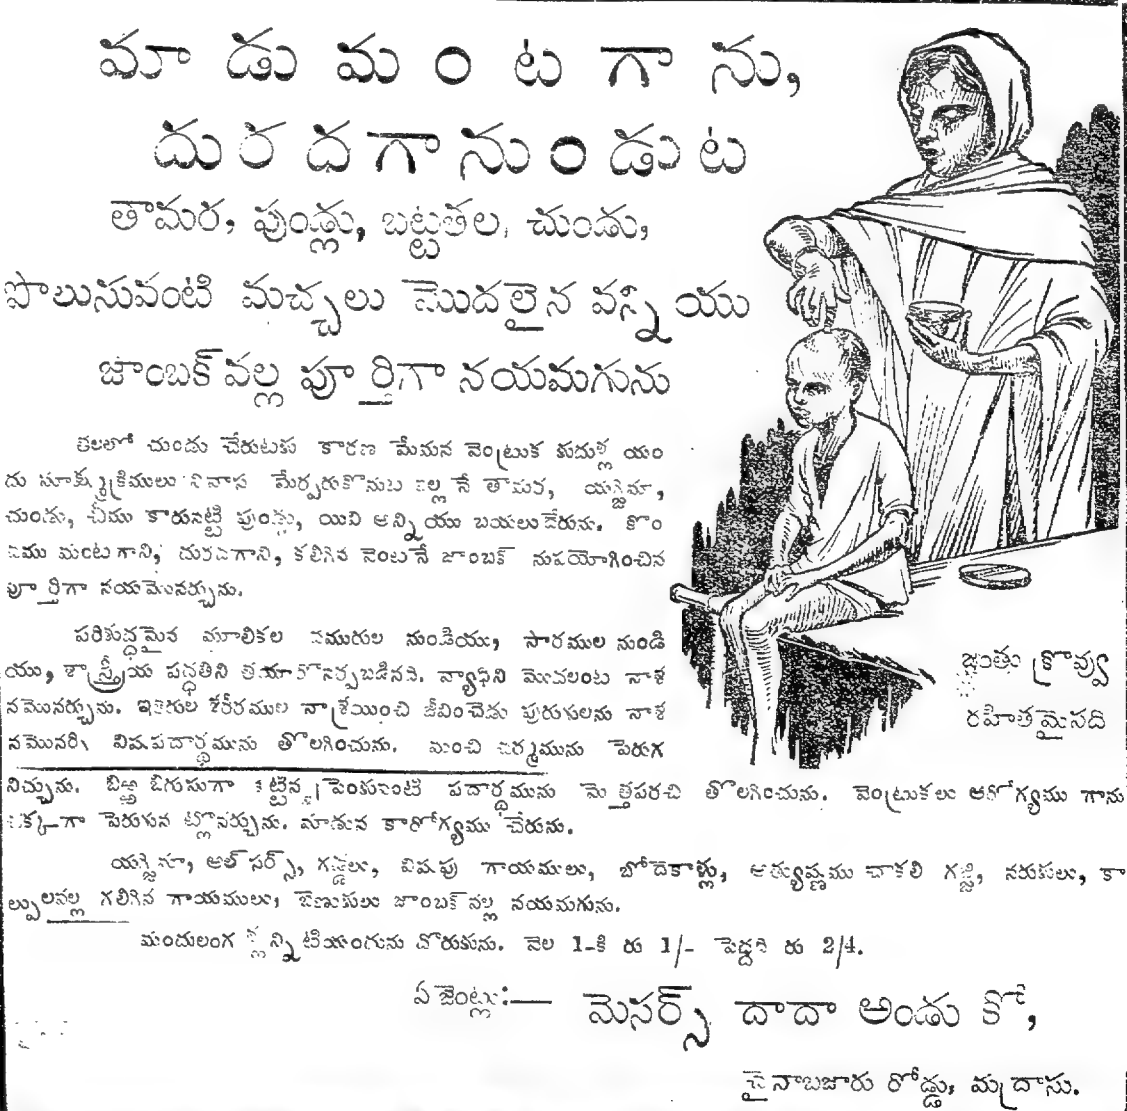 మాడుమంటగాను,
దురదగానుండుట
తామర, పుండ్లు, బట్టతల, చుండు,
పొలుసువంటి మచ్చలు మొదలైన వన్నియు
జాంబక్‌వల్ల పూర్తిగా నయమగును
తలలో చుండు చేరుటకు కారణ మేమన వెంట్రుక కుదుళ్ల యం
దు సూక్ష్మక్రిములు నివాస మేర్పరుకొనుట వల్ల నే తామర, యగ్జిమా,
చుండు, చీము కారునట్టి పుండ్లు, యివి అన్నియు బయలుదేరును. కొం
చము మంటగాని, దురదగాని, కలిగిన వెంటనే జాంబక్ నుపయోగించిన
పూర్తిగా నయమొనర్చును.
పరిశుద్ధమైన మూలికల సమురుల నుండియు, సారముల నుండి
యు, శాస్త్రీయ పద్ధతిని తయారొనర్పబడినది. వ్యాధిని మొదలంట నాశ
నమొనర్చును. ఇతరుల శరీరముల నాశ్రయించి జీవించెడు పురుగులను నాశ
నమొనర్చి విషపదార్థమును తొలగించును. మంచి చర్మమును పెరుగ
నిచ్చును. బిఱ్ఱ బిగుసుగా కట్టిన పెంకువంటి పదార్థమును మెత్తపరచి తొలగించును. వెంట్రుకలు ఆరోగ్యము గాను
చక్కగా పెరుగున ట్లొనర్చును. మాడున కారోగ్యము చేరును.
యగ్జిమా, అల్సర్స్, గడ్డలు, విషపు గాయములు, బోదెకాళ్లు, అత్యుష్ణము చాకలి గజ్జి, నరుపులు, కా
ల్పులవల్ల గలిగిన గాయములు, బెణుకులు జాంబక్‌వల్ల నయమగును.
మందులంగళ్లన్నిటియందును దొరుకును. వెల 1-కి రు 1/- పెద్దది రు 2/4.
జంతు క్రొవ్వు
రహితమైనది
ఏజెంట్లు:— మెసర్స్ దాదా అండు కో,
చైనాబజారు రోడ్డు, మద్రాసు.